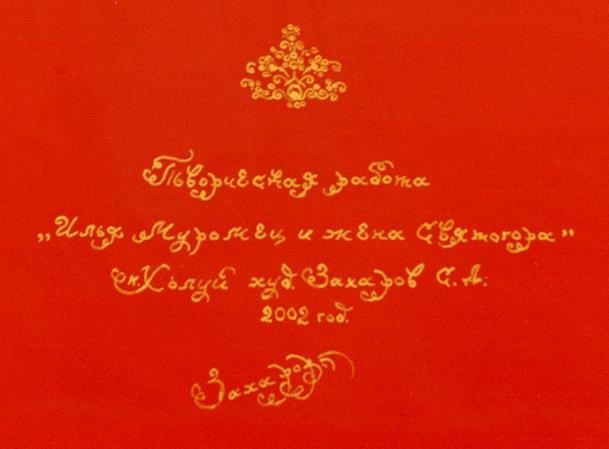 Творческая работа
„Илья Муромец и жена Святогора”
п. Холуй худ. Захаров С. А.
2002 год.
Захаров